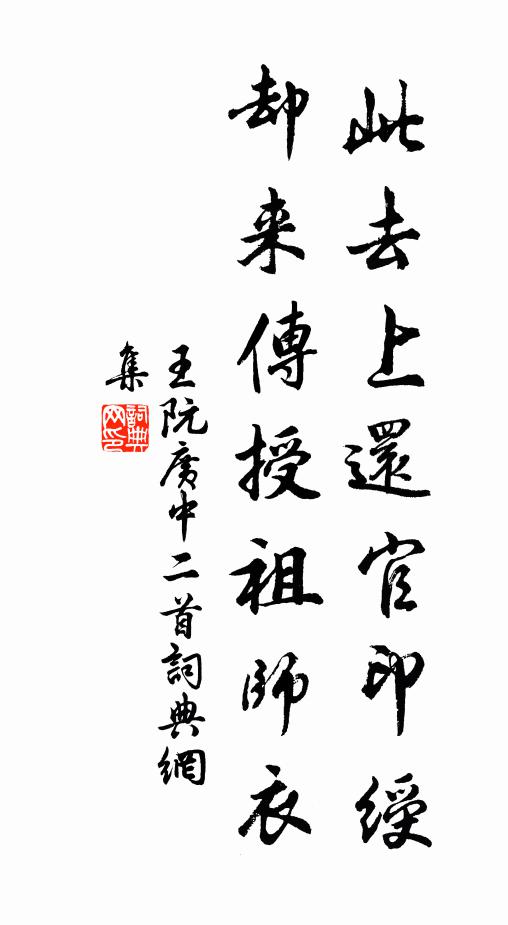 此去上還官印綬
却来傳授祖師衣
王阮廣中二首詞典網
集
詞典
网印